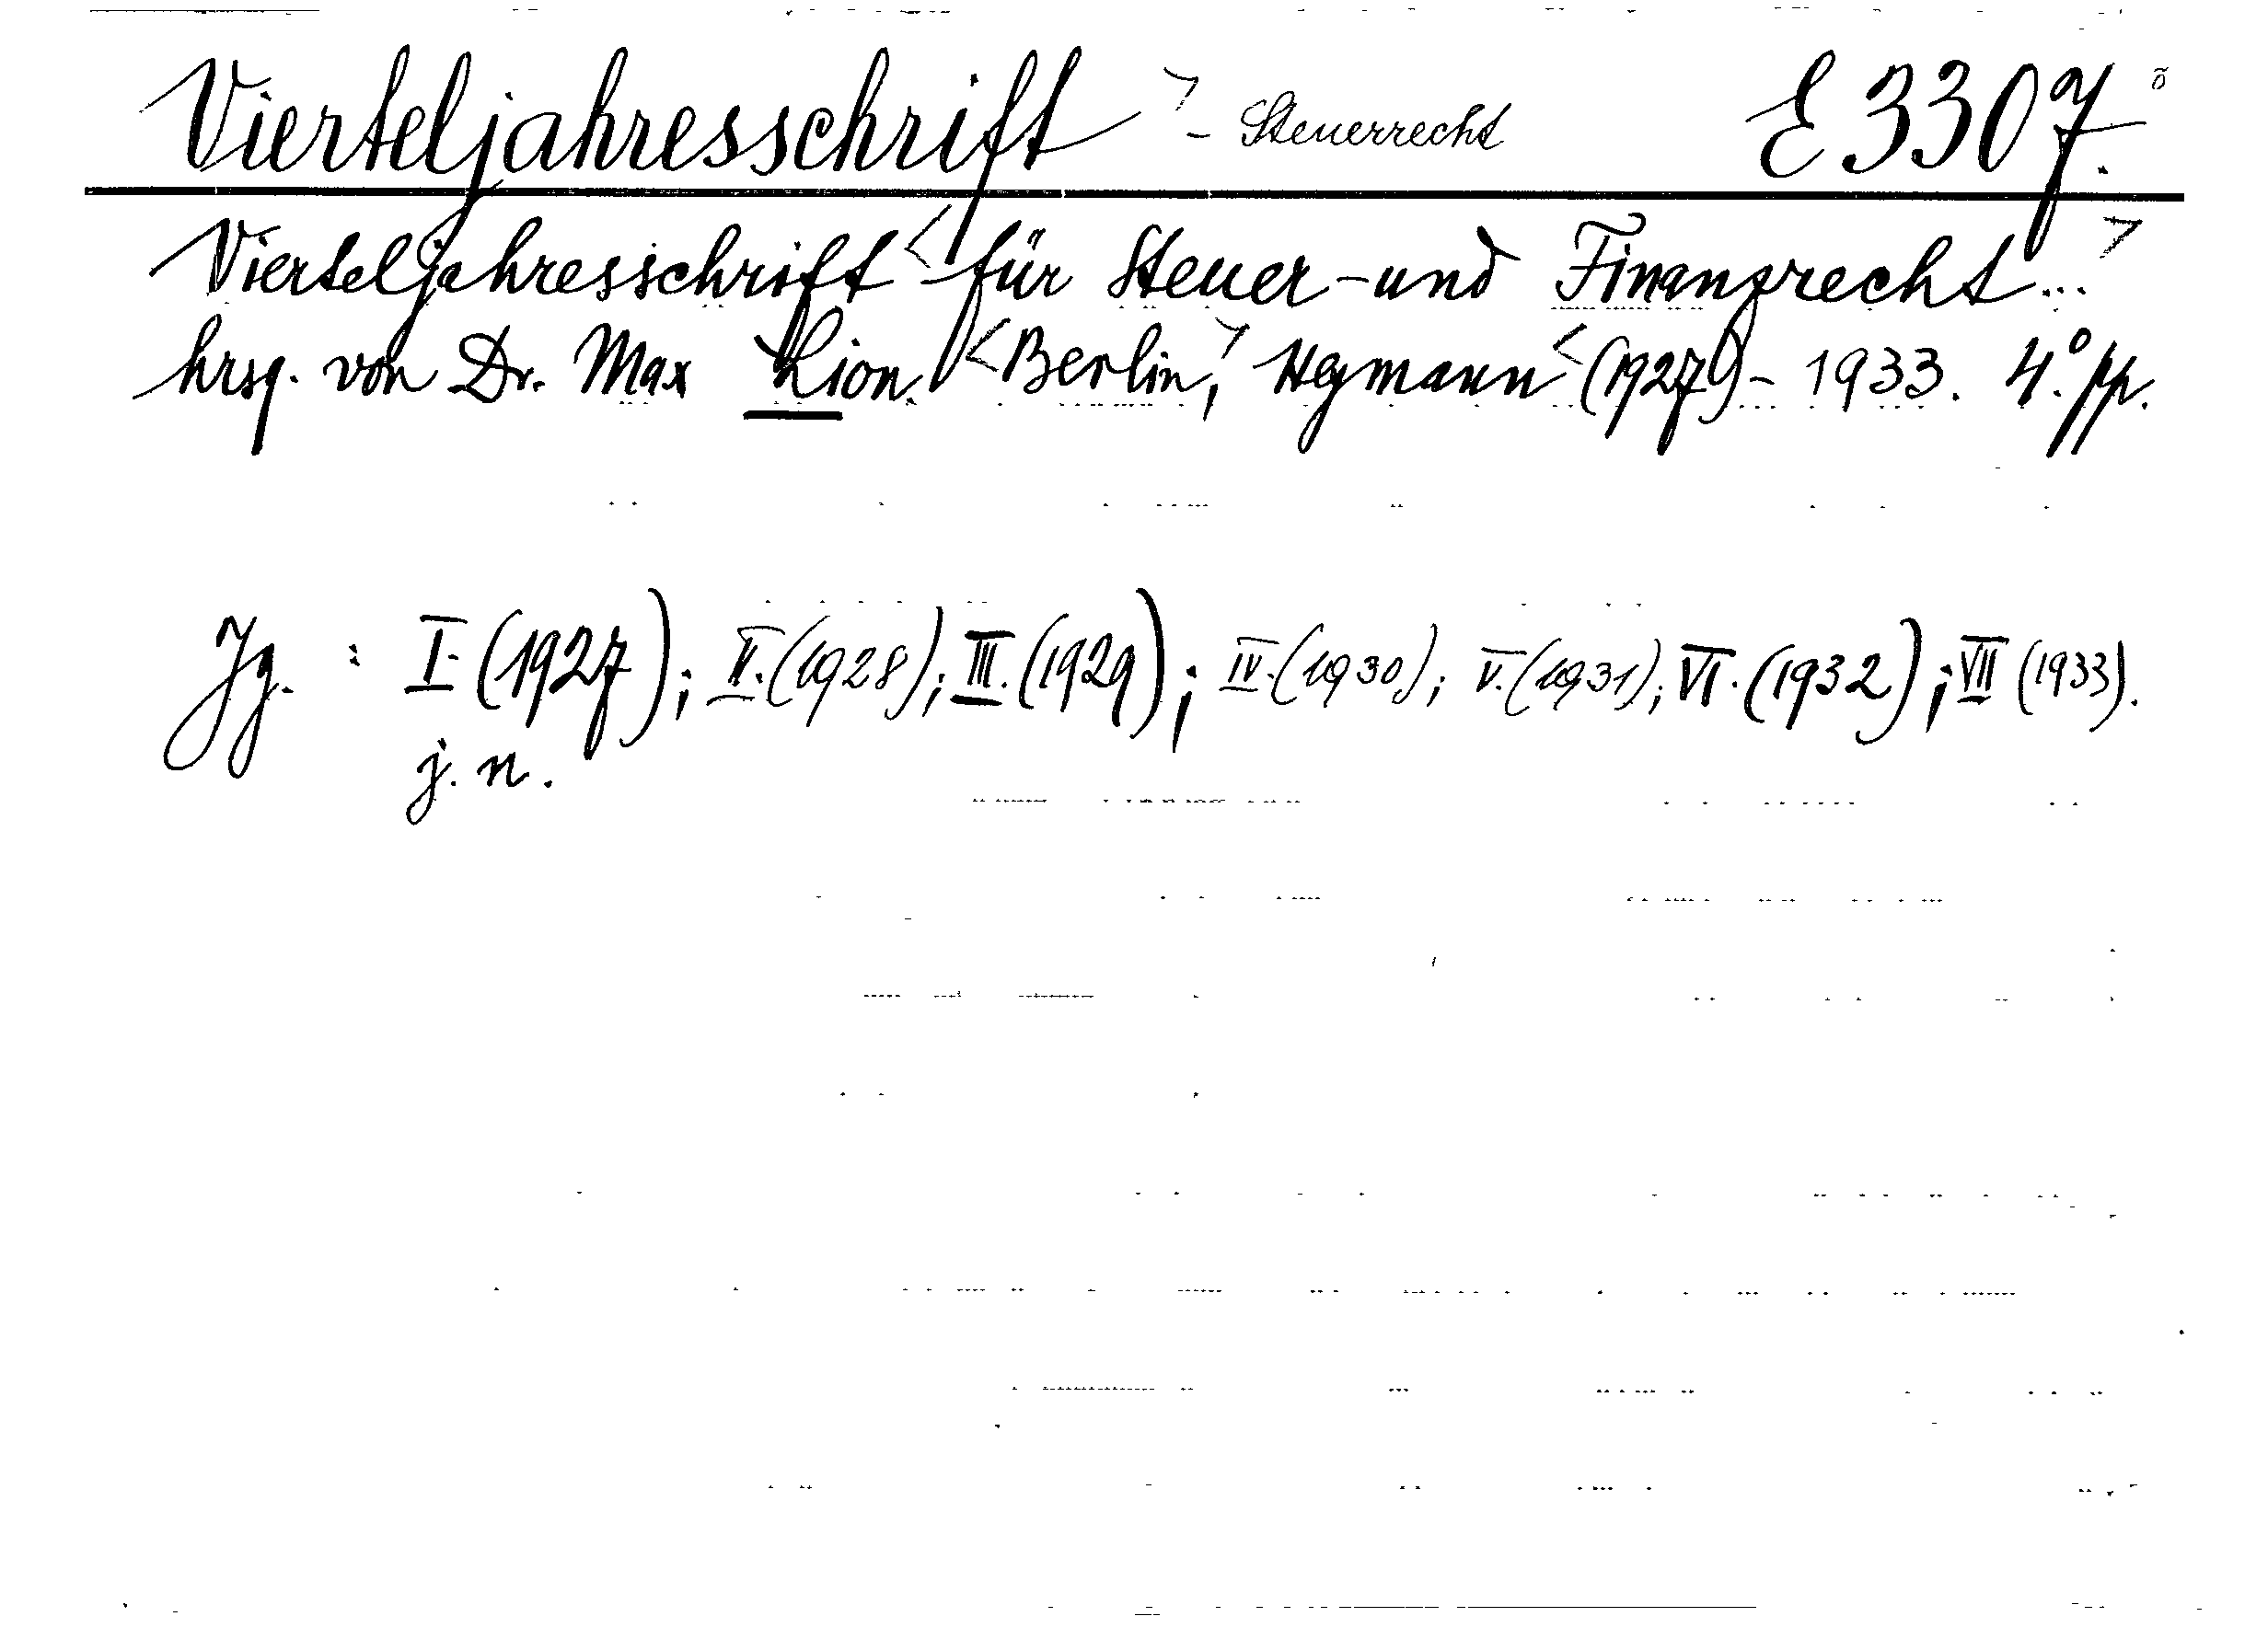 Vierteljahresschrift > - Steuerrecht E 3307.
Vierteljahresschrift < für Steuer-und Finanzrecht... >
hrsg. von Dr. Max Lion. < Berlin, > Heymann < (1927)- 1933. 4°. pp.
Jg. : I. (1927); II. (1928); III. (1929); IV. (1930); V. (1931); VI. (1932); VII (1933).
j. n.